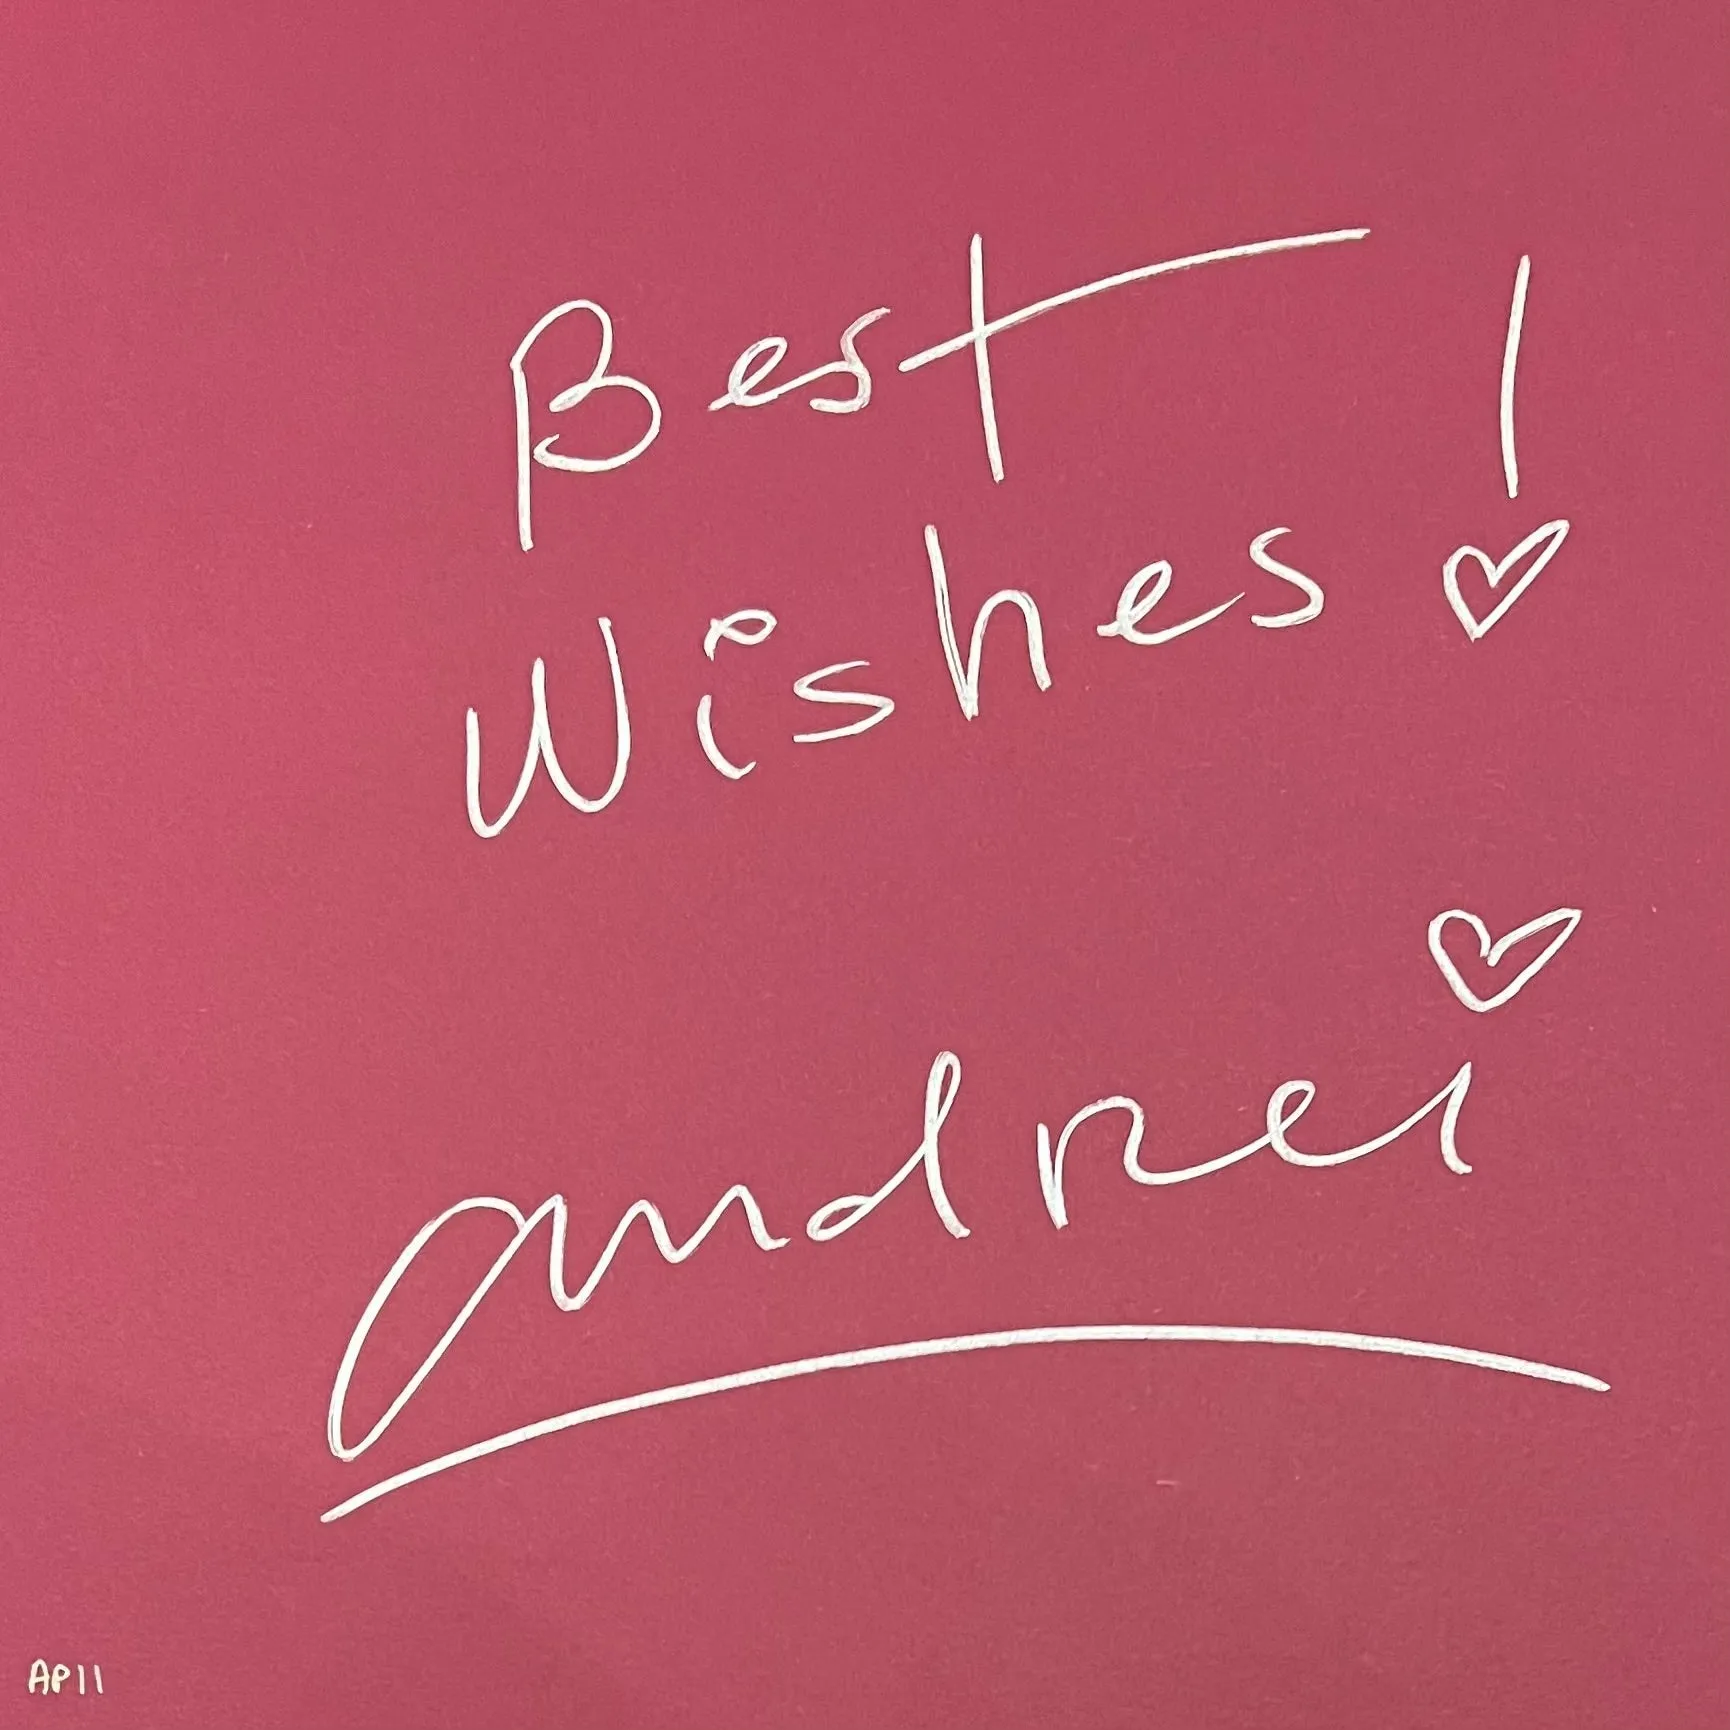 Best
Wishes!
Andrei
AP11